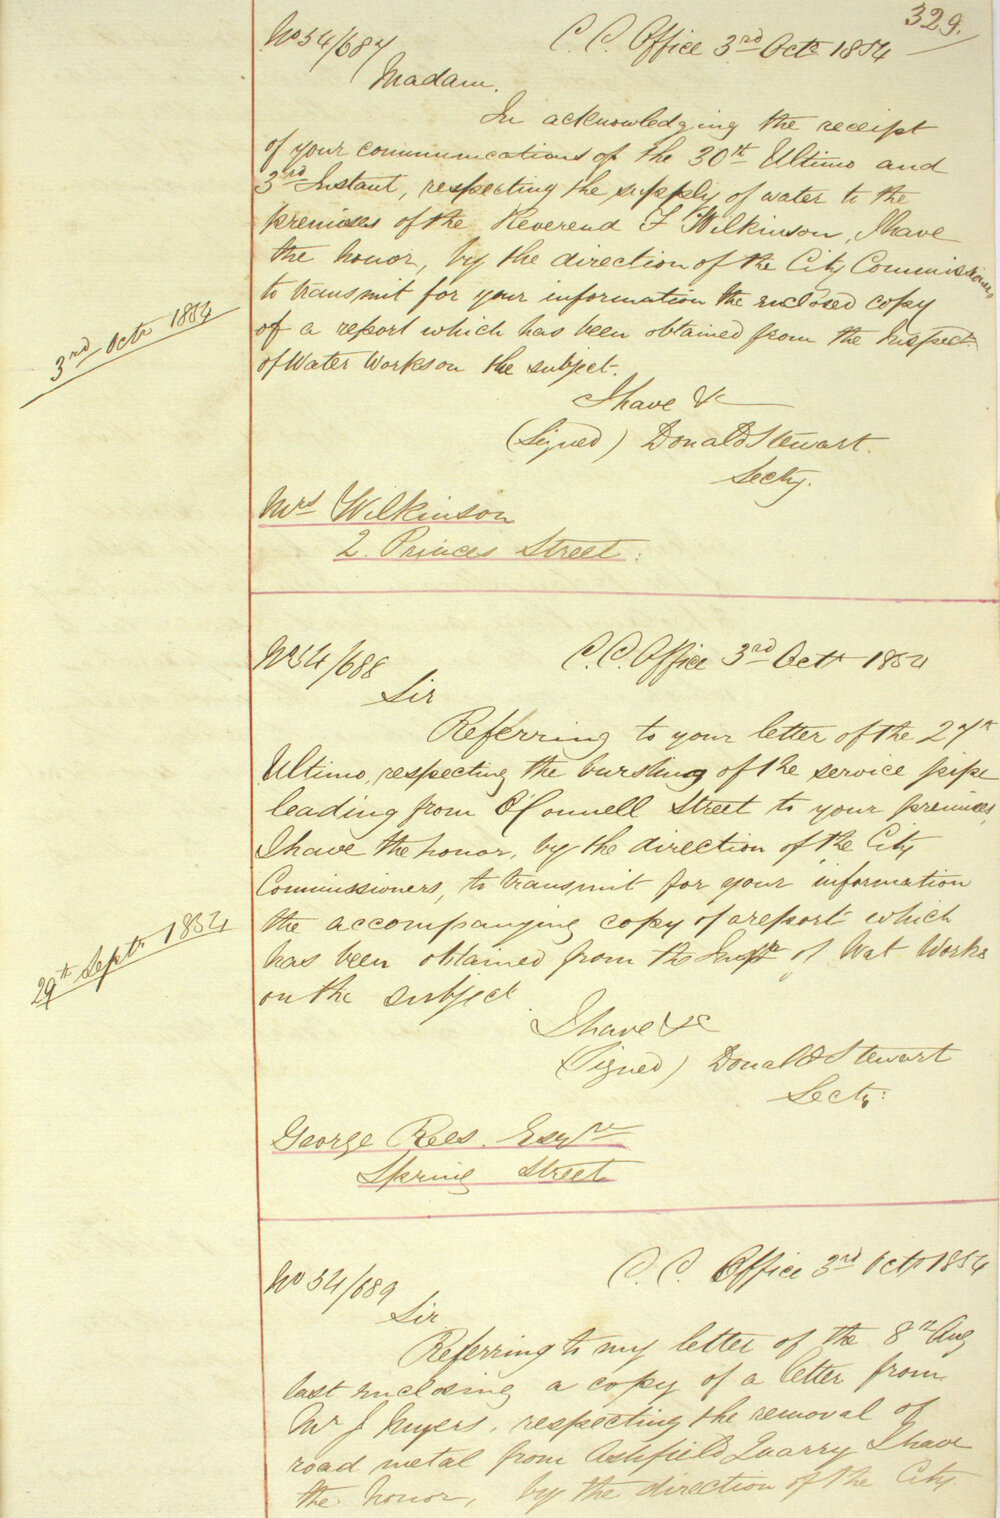 329.
No 54/687 C. C. Office 3rd Octr 1854
Madam.
In acknowledging the receipt
of your communications of the 30th Ultimo and
3rd Instant, respecting the supply of water to the
premises of the Reverend F Wilkinson, I have
the honor, by the direction of the City Commissioners
to transmit for your information the enclosed copy
of a report which has been obtained from the Inspectr
of Water Works on the subject.
3rd Octr 1854
I have &c
(Signed) Donald Stewart.
Secty.
Mrs Wilkinson
2. Princes Street.
No 54/688 C. C. Office 3rd Octr 1854
Sir
Referring to your letter of the 27th
Ultimo, respecting the bursting of the service pipe
leading from O'Connell Street to your premises,
I have the honor, by the direction of the City
Commissioners, to transmit for your information
the accompanying copy of a report which
has been obtained from the Inspr of Wat Works
on the subject
29th Septr 1854
I have &c
(Signed) Donald Stewart
Secty:
George Rees. Esqre
Spring Street
No 54/689 C. C. Office 3rd Octr 1854
Sir
Referring to my letter of the 8th Aug
last enclosing a copy of a letter from
Mr J Myers, respecting the removal of
road metal from Ashfield Quarry I have
the honor, by the direction of the City